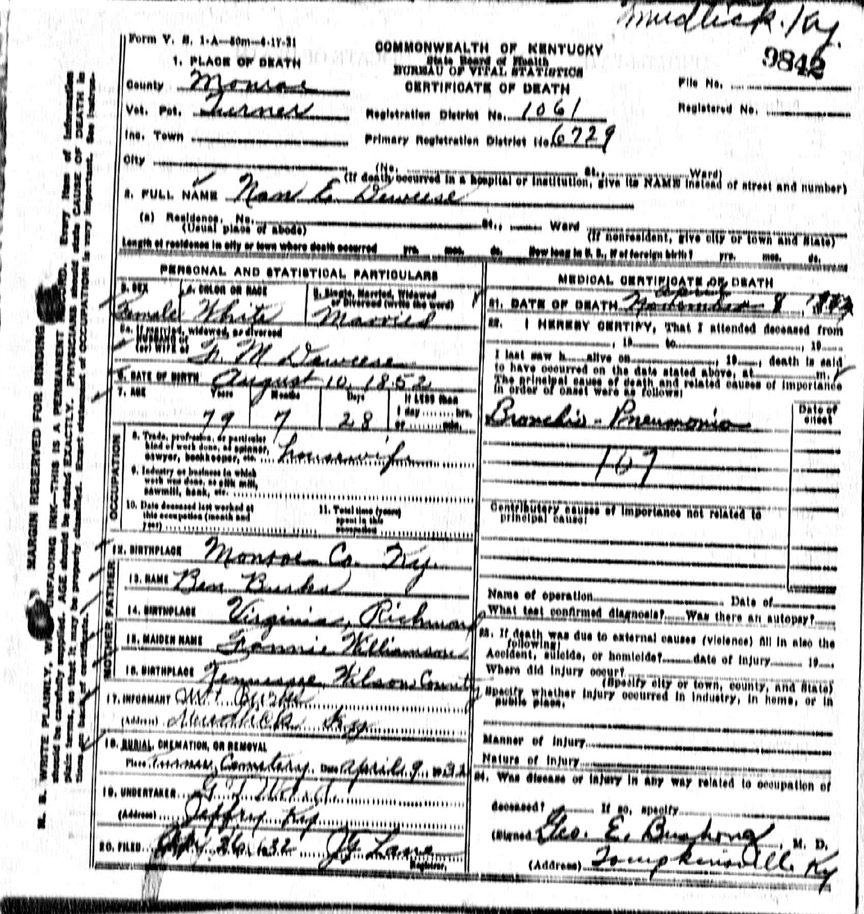 Mudlick. Ky.
Form V. S. 1-A—50m—4-17-31
COMMONWEALTH OF KENTUCKY
State Board of Health
BUREAU OF VITAL STATISTICS
CERTIFICATE OF DEATH
9842
1. PLACE OF DEATH
County Monroe
File No.
Vot. Pct. Turner
Registration District No. 1061
Registered No.
Inc. Town
Primary Registration District No. 6729
City
(No. St., Ward)
(If death occurred in a hospital or institution, give its NAME instead of street and number)
2. FULL NAME Nan E. Deweese
(a) Residence. No. St., Ward
(Usual place of abode) (If nonresident, give city or town and State)
Length of residence in city or town where death occurred yrs. mos. ds. How long in U. S., if of foreign birth? yrs. mos. ds.
PERSONAL AND STATISTICAL PARTICULARS
3. SEX 4. COLOR OR RACE 5. Single, Married, Widowed
Female White Married
5a. If married, widowed, or divorced
(or) WIFE of M Deweese
6. DATE OF BIRTH August 10, 1852
7. AGE Years Months Days If LESS than
1 day hrs.
79 7 28 or min.
OCCUPATION
8. Trade, profession, or particular
kind of work done, as spinner,
sawyer, bookkeeper, etc. housewife
9. Industry or business in which
work was done, as silk mill,
sawmill, bank, etc.
10. Date deceased last worked at
this occupation (month and
year)
11. Total time (years)
spent in this
occupation
12. BIRTHPLACE Monroe Co. Ky.
FATHER
13. NAME Ben Burks
14. BIRTHPLACE Virginia, Richmond
MOTHER
15. MAIDEN NAME Fannie Williamson
16. BIRTHPLACE Tennessee Wilson County
17. INFORMANT
(Address) Mudlick Ky
18. BURIAL, CREMATION, OR REMOVAL
Place Turner Cemetery Date April 9, 1932
19. UNDERTAKER
(Address) Ky
20. FILED 26, 1932 J G Lane
Registrar.
MEDICAL CERTIFICATE OF DEATH
21. DATE OF DEATH April November 8, 1932
22. I HEREBY CERTIFY, That I attended deceased from
, 19 to , 19
I last saw h alive on , 19 , death is said
to have occurred on the date stated above, at m.
The principal cause of death and related causes of importance
in order of onset were as follows:
Date of
onset
Broncho-Pneumonia
107
Contributory causes of importance not related to
principal cause:
Name of operation Date of
What test confirmed diagnosis? Was there an autopsy?
23. If death was due to external causes (violence) fill in also the
following:
Accident, suicide, or homicide? date of injury 19
Where did injury occur?
(Specify city or town, county, and State)
Specify whether injury occurred in industry, in home, or in
public place.
Manner of injury
Nature of injury
24. Was disease or injury in any way related to occupation of
deceased? If so, specify
(Signed Geo. E. Bushong, M. D.
(Address) Tompkinsville Ky
MARGIN RESERVED FOR BINDING
N. B. WRITE PLAINLY, WITH UNFADING INK—THIS IS A PERMANENT RECORD. Every item of information
should be carefully supplied. AGE should be stated EXACTLY. PHYSICIANS should state CAUSE OF DEATH in
plain terms, so that it may be properly classified. Exact statement of OCCUPATION is very important. See instruc-
tions on back of certificate.